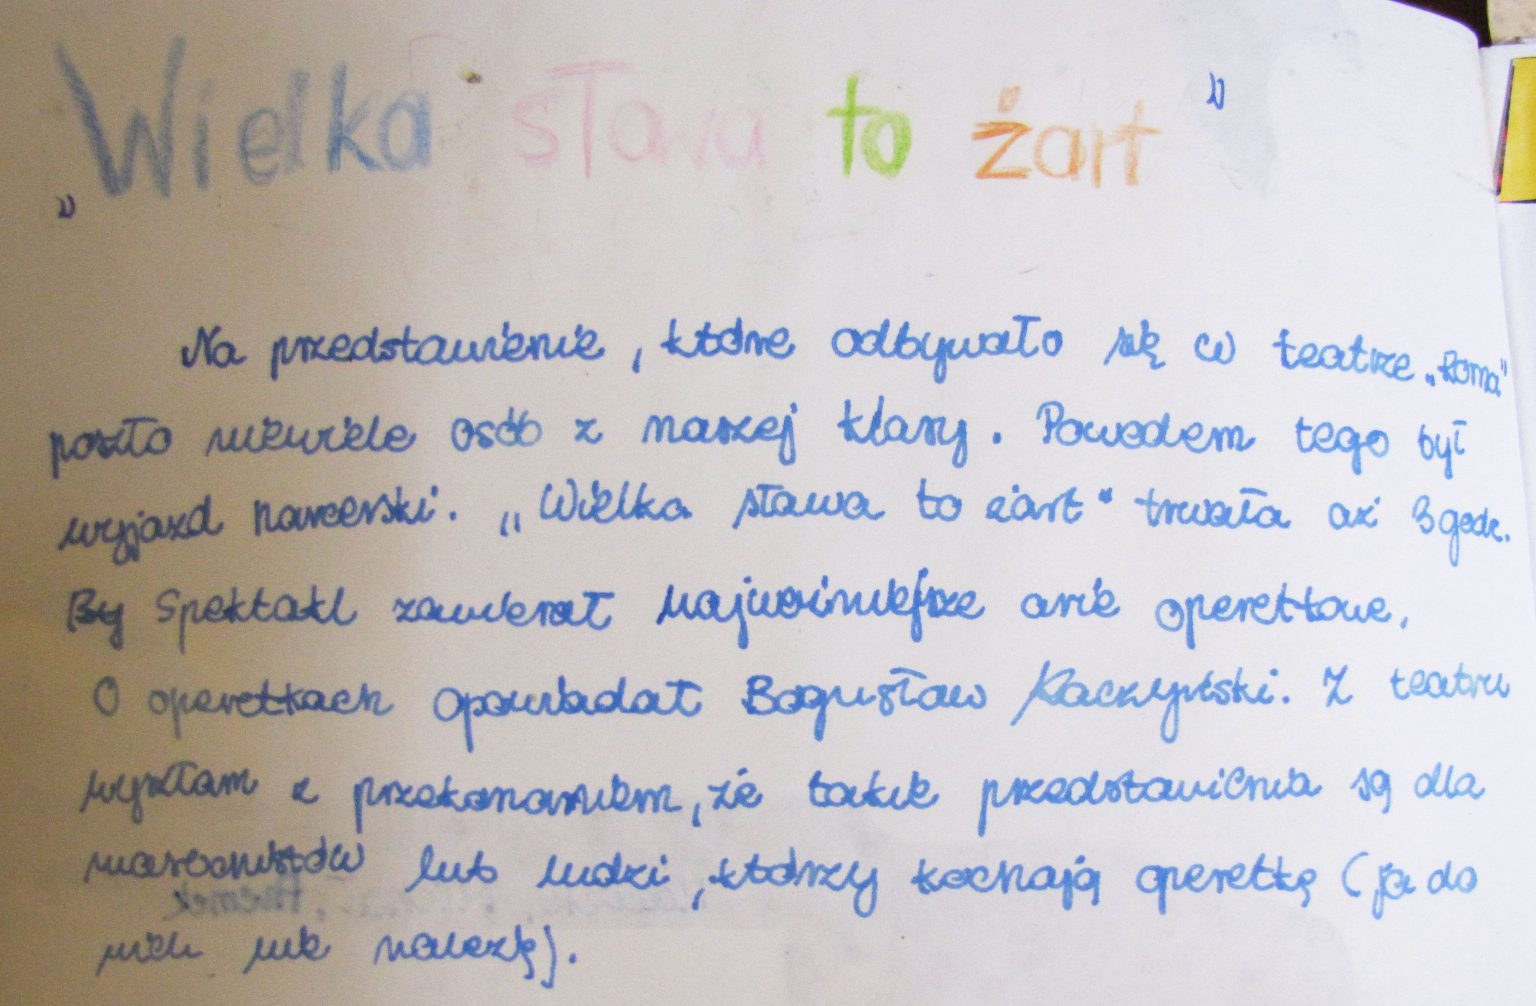 „Wielka sława to żart”
Na przedstawienie, które odbywało się w teatrze „Roma”
poszło niewiele osób z naszej klasy. Powodem tego był
wyjazd harcerski. „Wielka sława to żart” trwała aż 3 godz.
By Spektakl zawierał najważniejsze arie operetkowe.
O operetkach opowiadał Bogusław Kaczyński. Z teatru
wyszłam z przekonaniem, że takie przedstawienia są dla
lub ludzi, którzy kochają operetkę (ja do
nich nie należę).